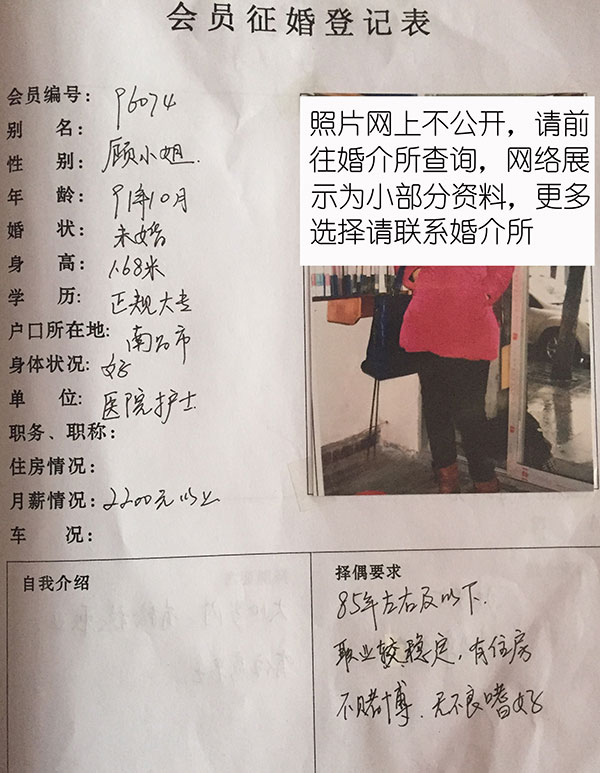 会员征婚登记表
会员编号: 96074
别 名: 顾小姐.
性 别:
年 龄: 91年10月
婚 状: 未婚
身 高: 1.68米
学 历: 正规大专
户口所在地: 南昌市
身体状况: 好
单 位: 医院护士
职务、职称:
住房情况:
月薪情况: 2200元以上
车 况:
照片网上不公开，请前
往婚介所查询，网络展
示为小部分资料，更多
选择请联系婚介所
自我介绍
择偶要求
85年左右及以下.
职业较稳定，有住房
不赌博、无不良嗜好